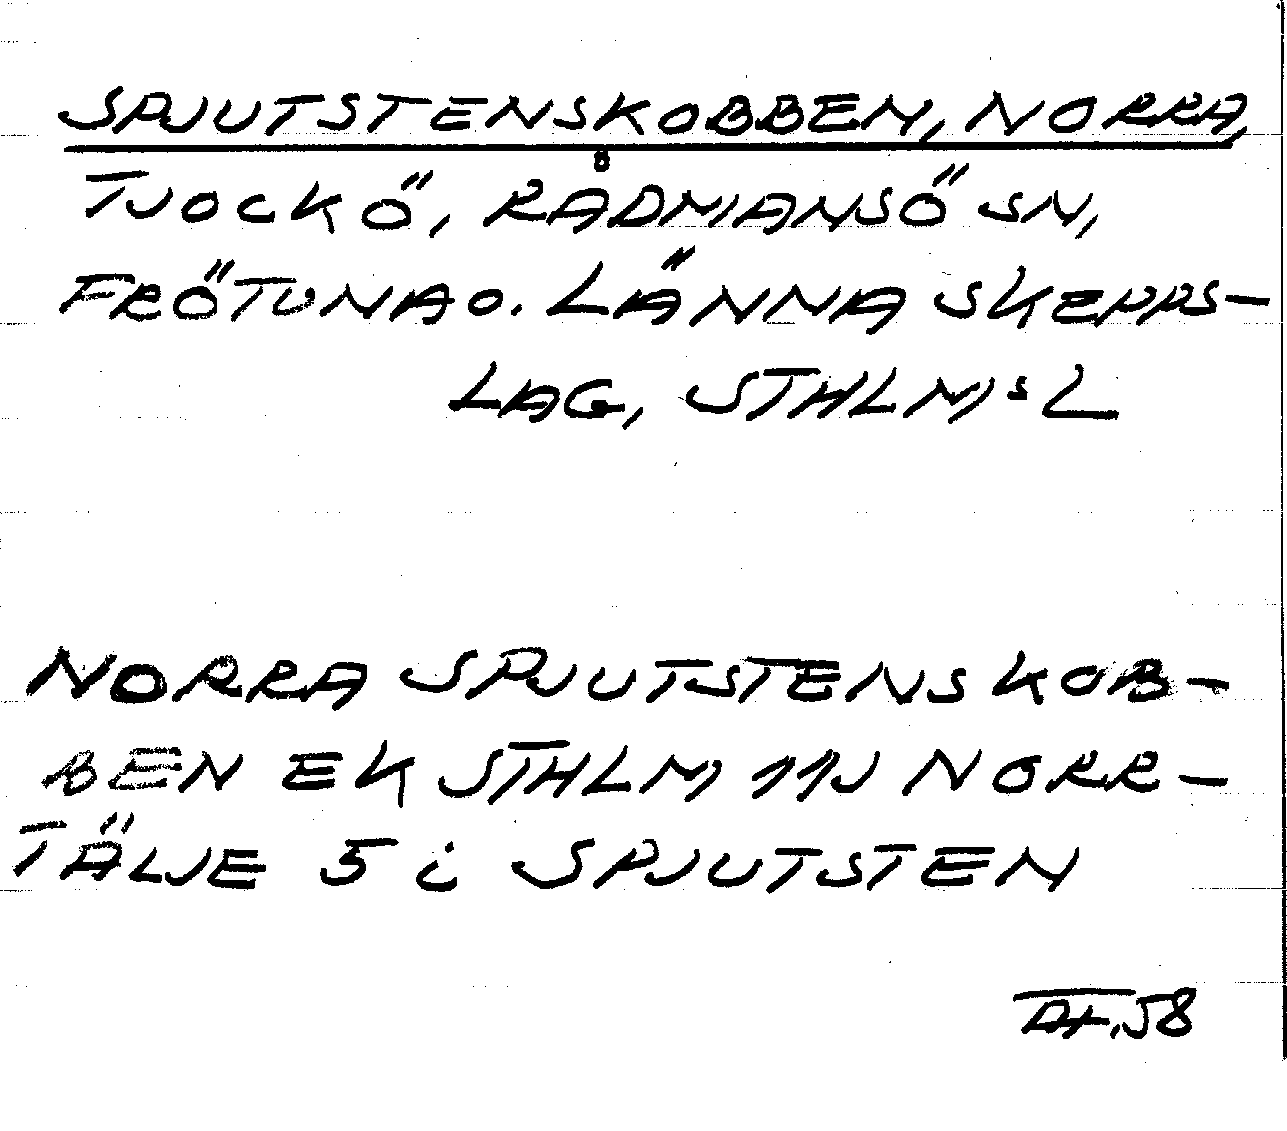 SPJUTSTENSKOBBEN, NORRA,
TJOCKÖ, RÅDMANSÖ SN,
FRÖTUNA O. LÄNNA SKEPPS-
LAG, STHLMS L
NORRA SPJUTSTENSKOB-
BEN EK STHLM 11J NORR-
TÄLJE 5 i SPJUTSTEN
58